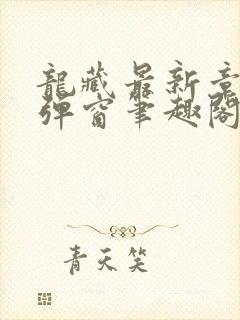 龍藏最新章
彈窗筆趣閣
青天笑